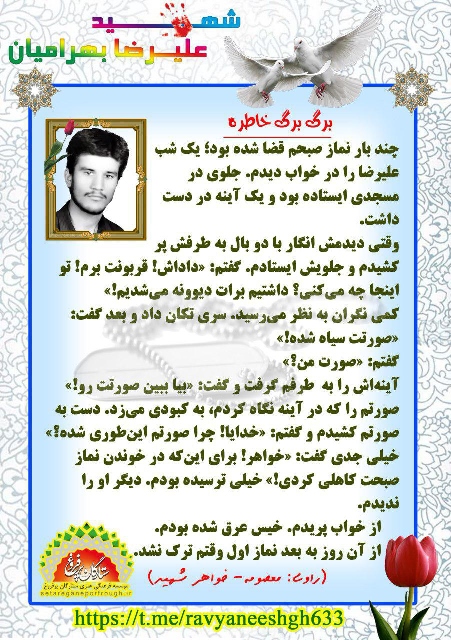 شهید
علیرضا بهرامیان
برگ برگ خاطره
چند بار نماز صبحم قضا شده بود؛ یک شب
علیرضا را در خواب دیدم. جلوی در
مسجدی ایستاده بود و یک آینه در دست
داشت.
وقتی دیدمش انگار با دو بال به طرفش پر
کشیدم و جلویش ایستادم. گفتم: «داداش! قربونت برم! تو
اینجا چه می‌کنی؟ داشتیم برات دیوونه می‌شدیم!»
کمی نگران به نظر می‌رسید. سری تکان داد و بعد گفت:
«صورتت سیاه شده!»
گفتم: «صورت من؟»
آینه‌اش را به طرفم گرفت و گفت: «بیا ببین صورتت رو!»
صورتم را که در آینه نگاه کردم، به کبودی می‌زد. دست به
صورتم کشیدم و گفتم: «خدایا! چرا صورتم این‌طوری شده؟»
خیلی جدی گفت: «خواهر! برای این‌که در خوندن نماز
صبحت کاهلی کردی!» خیلی ترسیده بودم. دیگر او را
ندیدم.
از خواب پریدم. خیس عرق شده بودم.
از آن روز به بعد نماز اول وقتم ترک نشد.
(راوی: معصومه - خواهر شهید)
ستارگان پرفروغ
موسسه فرهنگی هنری ستارگان پرفروغ
setareganeporforough.ir
https://t.me/ravyaneeshgh633